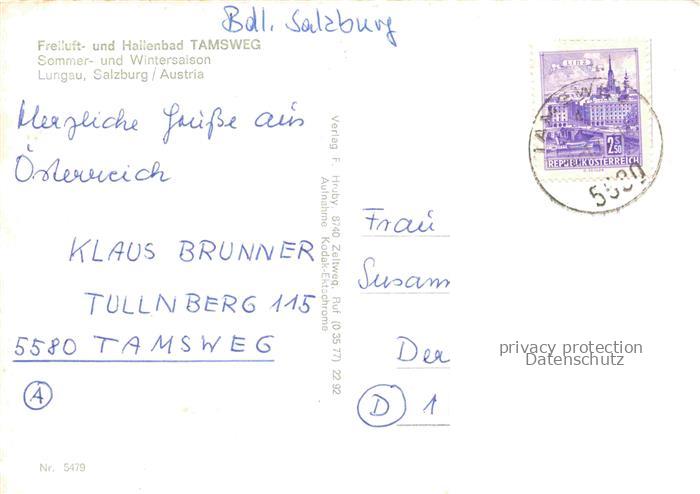 Bdl. Salzburg
Freiluft- und Hallenbad TAMSWEG
Sommer- und Wintersaison
Lungau, Salzburg/Austria
Herzliche Grüße aus
Österreich
KLAUS BRUNNER
TULLNBERG 115
5580 TAMSWEG
A
Nr. 5479
Verlag F. Hruby, 8740 Zeltweg, Ruf (0 35 77) 22 92
Aufnahme Kodak-Ektachrome
LINZ
2.50
REPUBLIK ÖSTERREICH
TAMSWEG
5580
Frau
Susann
Der
D 1
privacy protection
Datenschutz